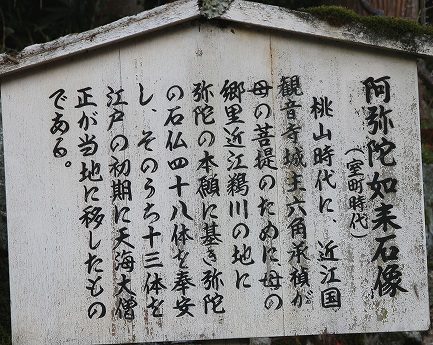 阿弥陀如来石像
(室町時代)
桃山時代に、近江国
観音寺城主六角承禎が
母の菩提のために母の
郷里近江鵜川の地に
弥陀の本願に基き弥陀
の石仏四十八体を奉安
し、そのうち十三体を
江戸の初期に天海大僧
正が当地に移したもの
である。